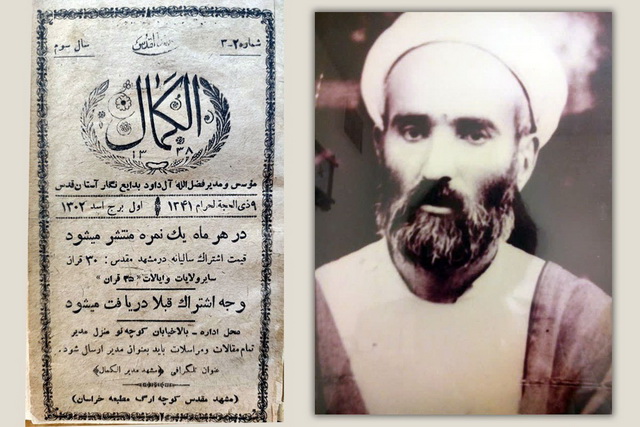 شماره ۲-۳
سال سوم
الکمال
۱۳۳۸
مؤسس و مدیر فضل‌الله آل‌داود بدایع نگار آستان قدس
۹ ذی الحجة لحرام ۱۳۴۱
اول برج اسد ۱۳۰۲
در هر ماه یك نمره منتشر میشود
قیمت اشتراك سالیانه در مشهد مقدس : ۳۰ قران
سایر ولایات و ایالات « ۳۵ قران »
وجه اشتراك قبلا دریافت میشود
محل اداره - بالاخیابان کوچه نو منزل مدیر
تمام مقالات و مراسلات باید بعنوان مدیر ارسال شود.
عنوان تلگرافی «مشهد مدیر الکمال»
(مشهد مقدس کوچه ارگ مطبعه خراسان)